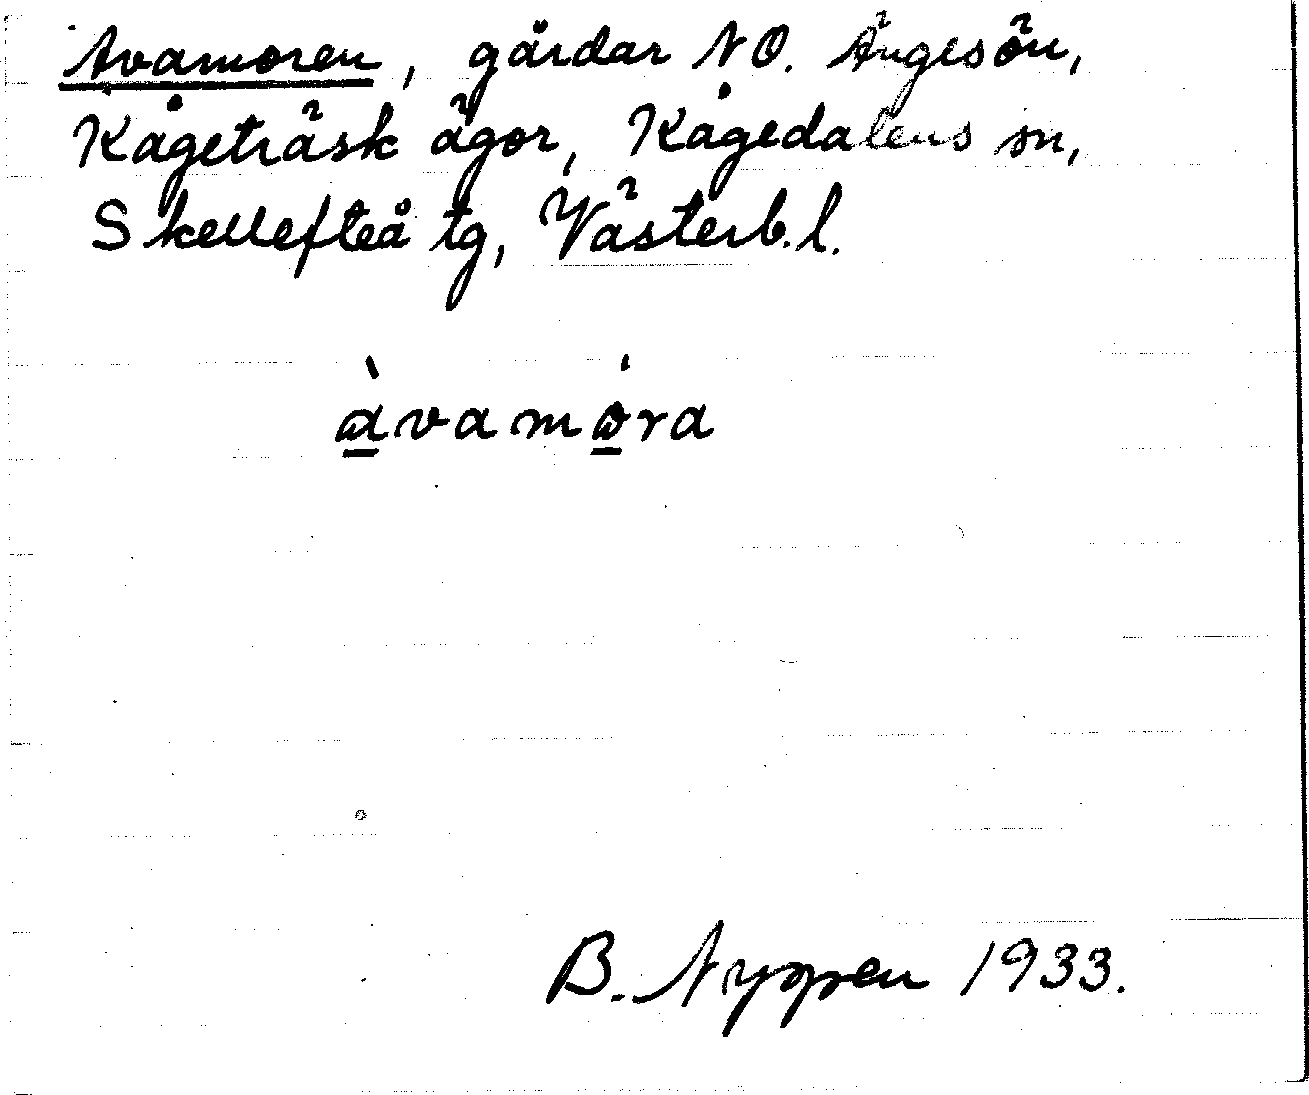 Avamoren, gårdar NO. Ängesön,
Kågeträsk ägor, Kågedalens sn,
Skellefteå tg, Västerb. l.
à̱vamȯ̱ra
B. Nygren 1933.